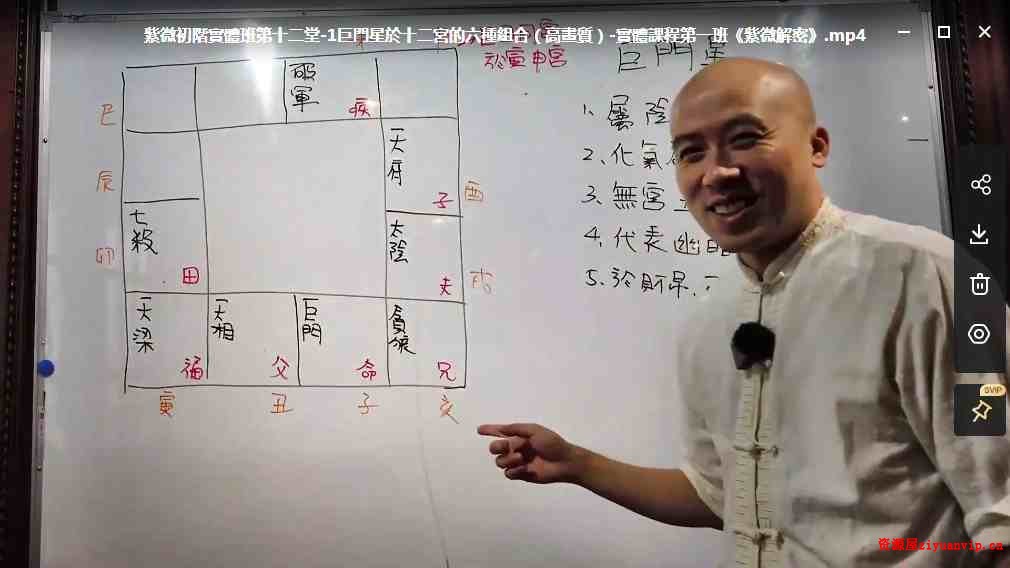 紫微初階實體班第十二堂-1巨門星於十二宮的六種組合（高畫質）-實體課程第一班《紫微解密》.mp4
於寅申宮
巨門星
破軍
疾
巳
1、屬陰
天府
子
酉
2、化氣
辰
3、無宮
七殺
田
卯
太陰
夫
戌
4、代表
5、於財帛
天梁
福
天相
父
巨門
命
貪狼
兄
寅
丑
子
亥
SVIP
资源屋ziyuanvip.cn